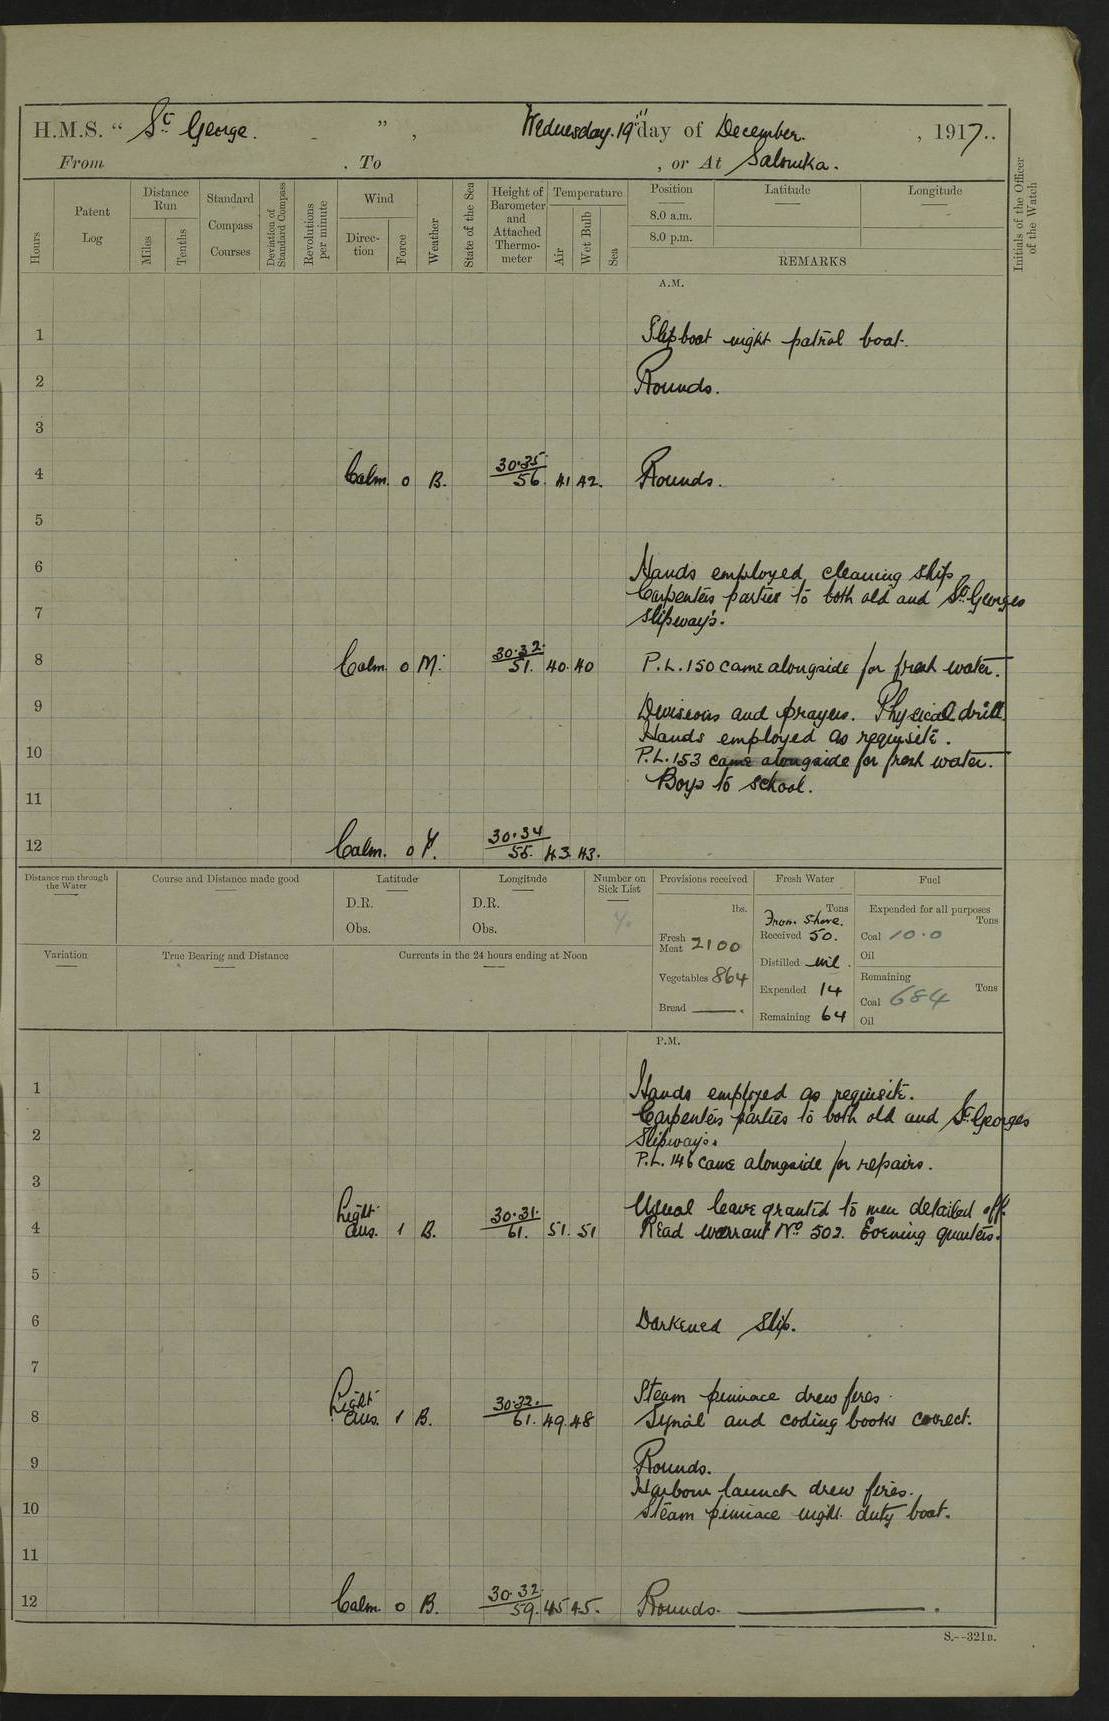 H.M.S. " St George. " , Wednesday. 19th day of December. , 1917..
From . To , or At Salonika.
Hours
Patent Log
Distance Run
Miles
Tenths
Standard Compass Courses
Deviation of Standard Compass
Revolutions per minute
Wind
Direction
Force
Weather
State of the Sea
Height of Barometer and Attached Thermometer
Temperature
Air
Wet Bulb
Sea
Position
Latitude
Longitude
8.0 a.m.
8.0 p.m.
REMARKS
Initials of the Officer of the Watch
A.M.
1 Slip boat night patrol boat.
2 Rounds.
3
4 Calm. 0 B. 30.35/56. 41 42. Rounds.
5
6 Hands employed cleaning ship
Carpenters parties to both old and St Georges
7 slipways.
8 Calm. 0 M. 30.32/51. 40. 40 P.L. 150 came alongside for fresh water.
9 Divisions and prayers. Physical drill
Hands employed as requisite.
10 P.L. 153 came alongside for fresh water.
Boys to school.
11
12 Calm. 0 30.34/55. 43. 43.
Distance run through the Water
Course and Distance made good
Latitude
D.R.
Obs.
Longitude
D.R.
Obs.
Number on Sick List
Provisions received
lbs.
Fresh Meat 2100
Vegetables 864
Bread
Fresh Water
Tons
From Shore.
Received 50.
Distilled nil.
Expended 14
Remaining 64
Fuel
Expended for all purposes
Tons
Coal 10.0
Oil
Remaining
Tons
Coal 684
Oil
Variation
True Bearing and Distance
Currents in the 24 hours ending at Noon
P.M.
1 Hands employed as requisite.
Carpenters parties to both old and St Georges
2 Slipways.
P.L. 146 came alongside for repairs.
3
Usual leave granted to men detailed off.
4 Light airs. 1 B. 30.31./61. 51. 51 Read warrant No 502. Evening quarters.
5
6 Darkened Ship.
7
Steam pinnace drew fires.
8 Light airs. 1 B. 30.32./61. 49. 48 Signal and coding books correct.
9 Rounds.
Harbour launch drew fires.
10 Steam pinnace night duty boat.
11
12 Calm. 0 B. 30.32./59. 45 45. Rounds.
S.--321B.